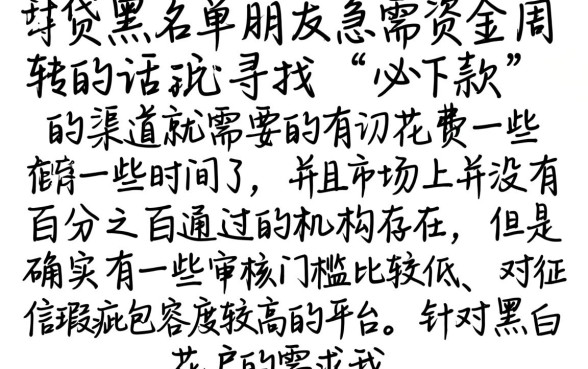 贷黑名单朋友急需资金周
转的话 寻找“必下款”
的渠道就需要的有 花费一些
一些时间了，并且市场上并没有
百分之百通过的机构存在，但是
确实有一些审核门槛比较低、对征
信瑕疵包容度较高的平台。针对黑白
花户的需求我